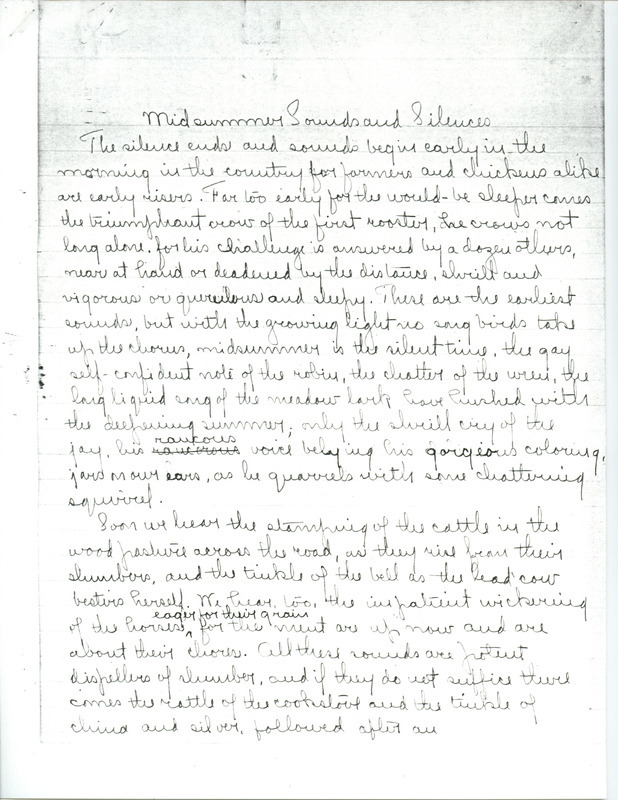 Midsummer Sounds and Silences
The silence ends and sounds begin early in the
morning in the country for farmers and chickens alike
are early risers. Far too early for the would-be sleeper comes
the triumphant crow of the first rooster, he crows not
long alone, for his challenge is answered by a dozen others,
near at hand or deadened by the distance, shrill and
vigorous or querulous and sleepy. These are the earliest
sounds, but with the growing light no song birds take
up the chorus, midsummer is the silent time, the gay
self-confident note of the robin, the chatter of the wren, the
long liquid song of the meadow lark have hushed with
the deepening summer; only the shrill cry of the
raucous
jay, his voice belying his gorgeous coloring,
jars on our ears, as he quarrels with some chattering
squirrel.
Soon we hear the stamping of the cattle in the
wood pasture across the road, as they rise from their
slumbers, and the tinkle of the bell as the lead cow
bestirs herself. We hear, too, the impatient wickering
eager for their grain
of the horses, for the men are up now and are
about their chores. All these sounds are potent
dispellers of slumber, and if they do not suffice there
comes the rattle of the cookstove and the tinkle of
china and silver, followed after an